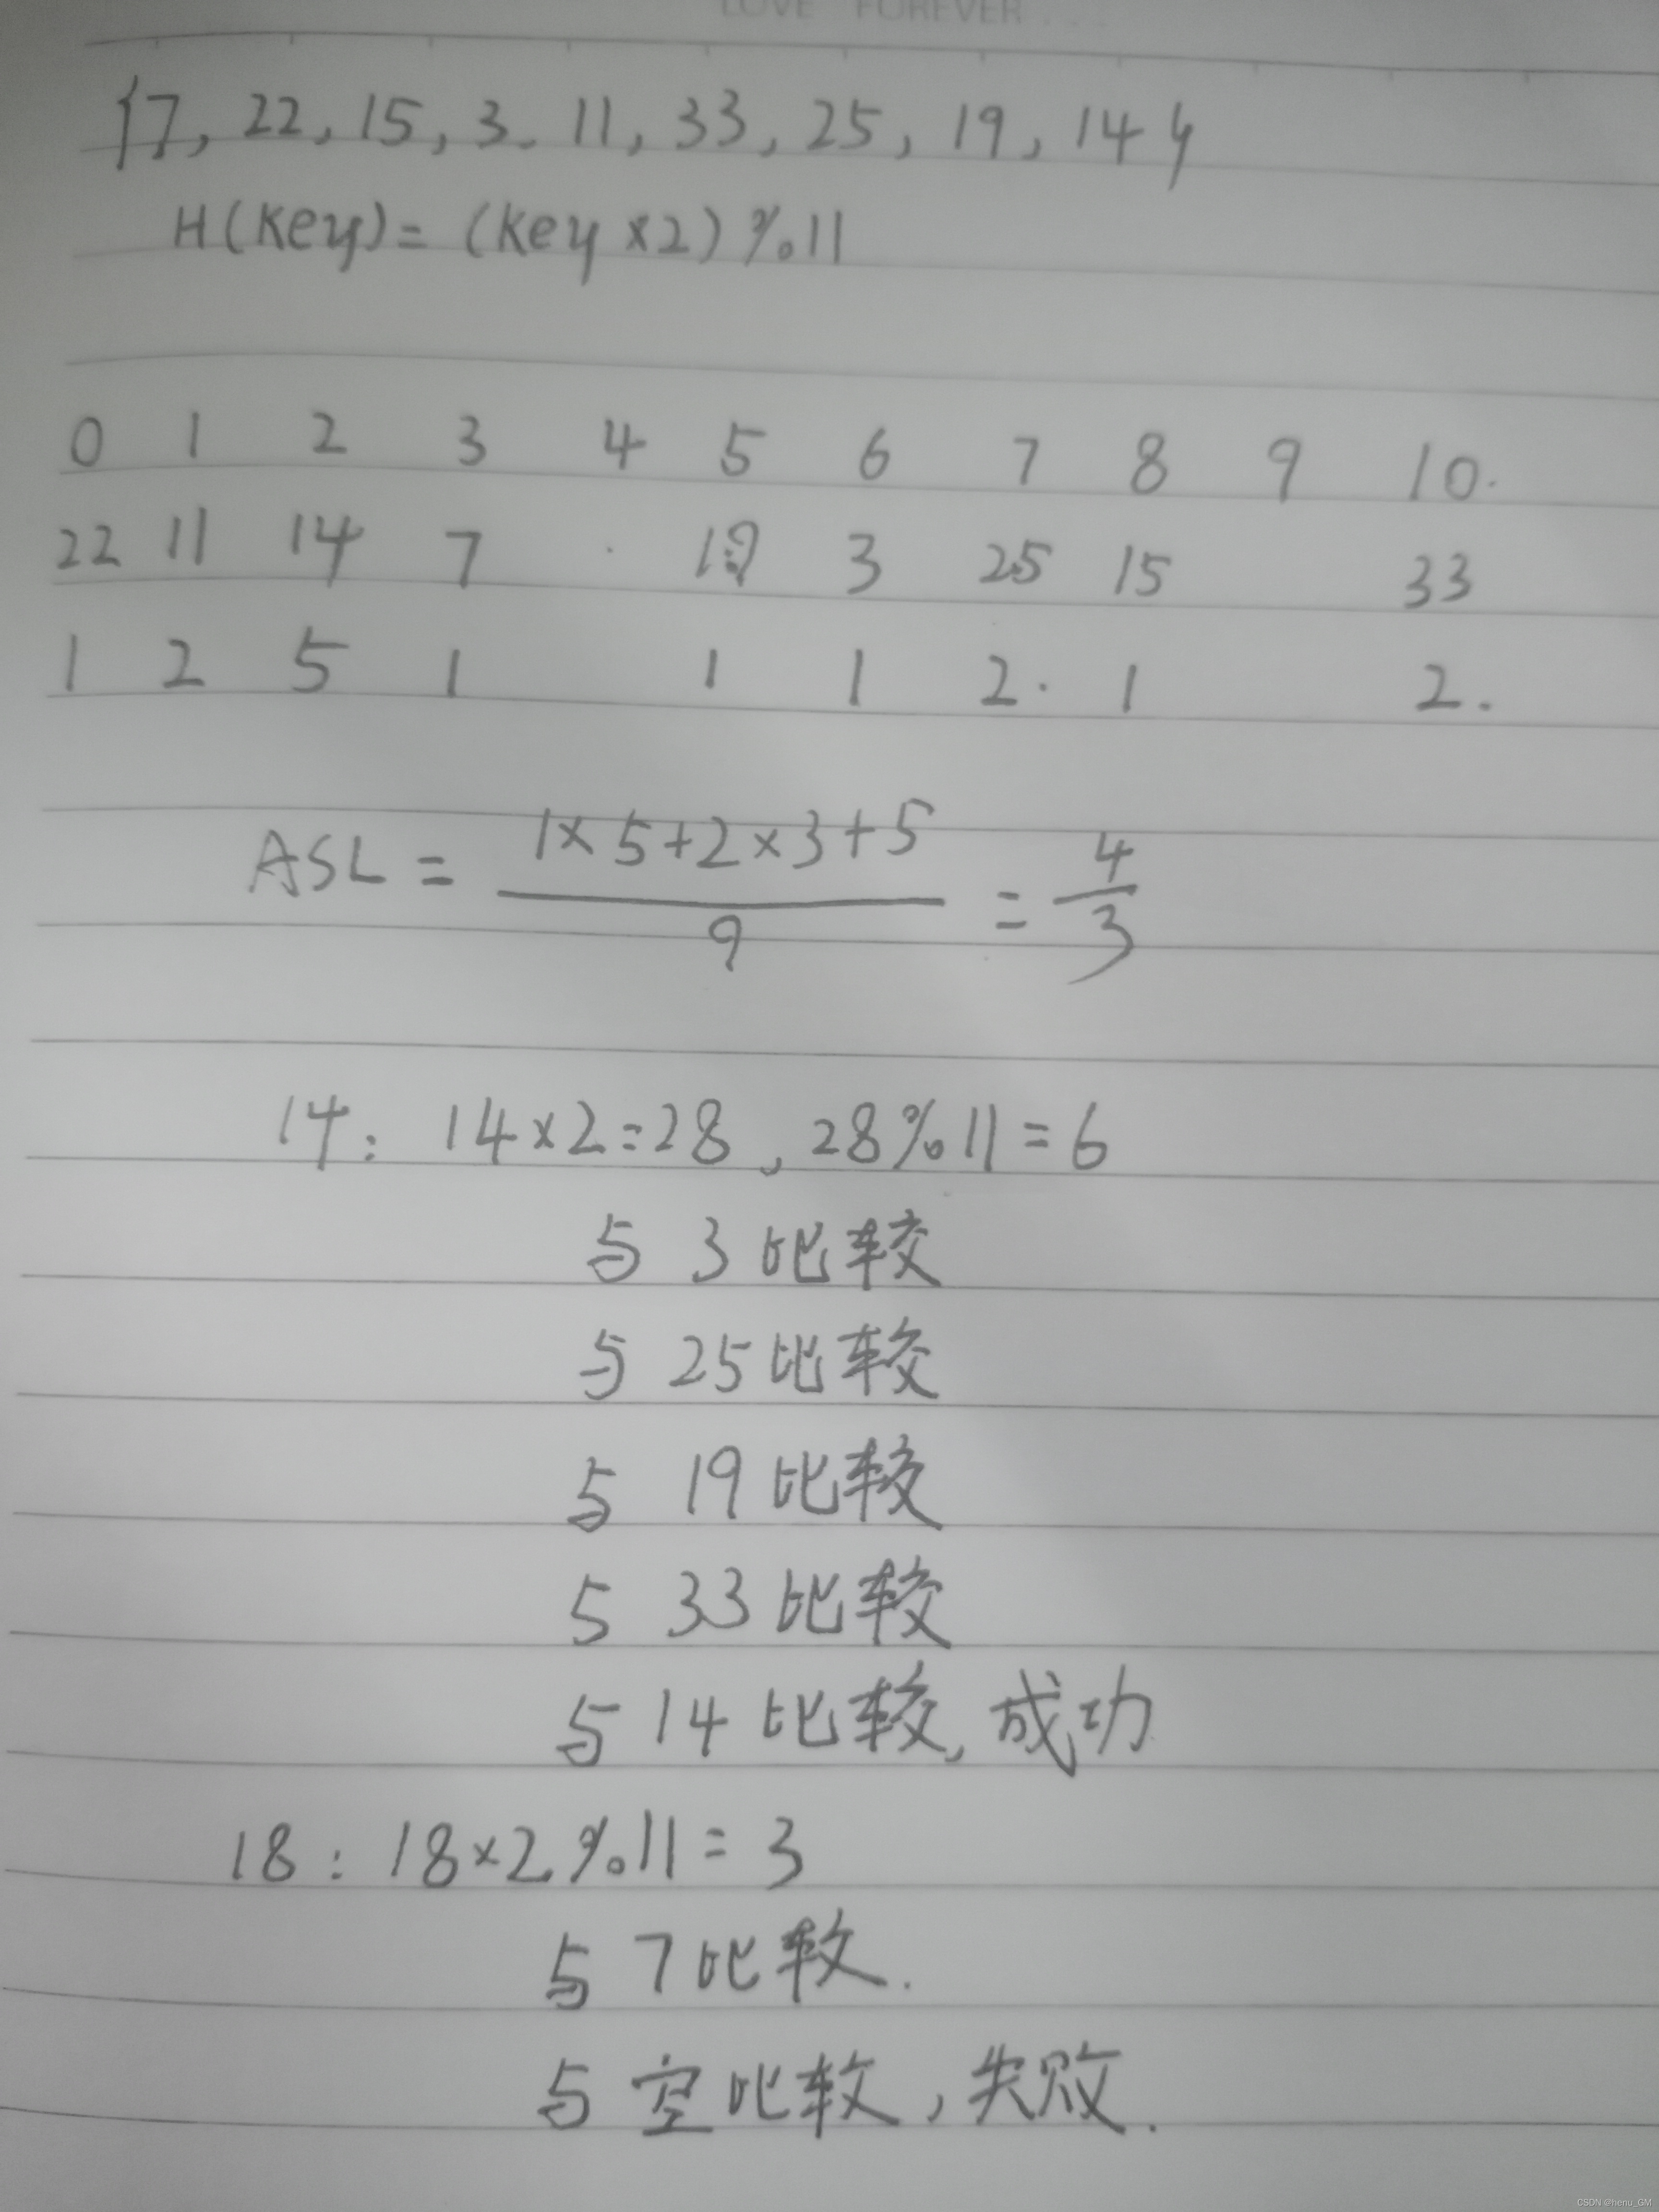 LOVE FOREVER...
{7, 22, 15, 3. 11, 33, 25, 19, 14}
H(Key) = (Key×2)%11
0 1 2 3 4 5 6 7 8 9 10.
22 11 14 7 19 3 25 15 33
1 2 5 1 1 1 2. 1 2.
ASL = (1×5+2×3+5)/9 = 4/3
14: 14×2=28, 28%11=6
与 3 比较
与 25 比较
与 19 比较
与 33 比较
与 14 比较, 成功
18: 18×2%11=3
与 7 比较.
与 空 比较, 失败.
CSDN @henu_GM